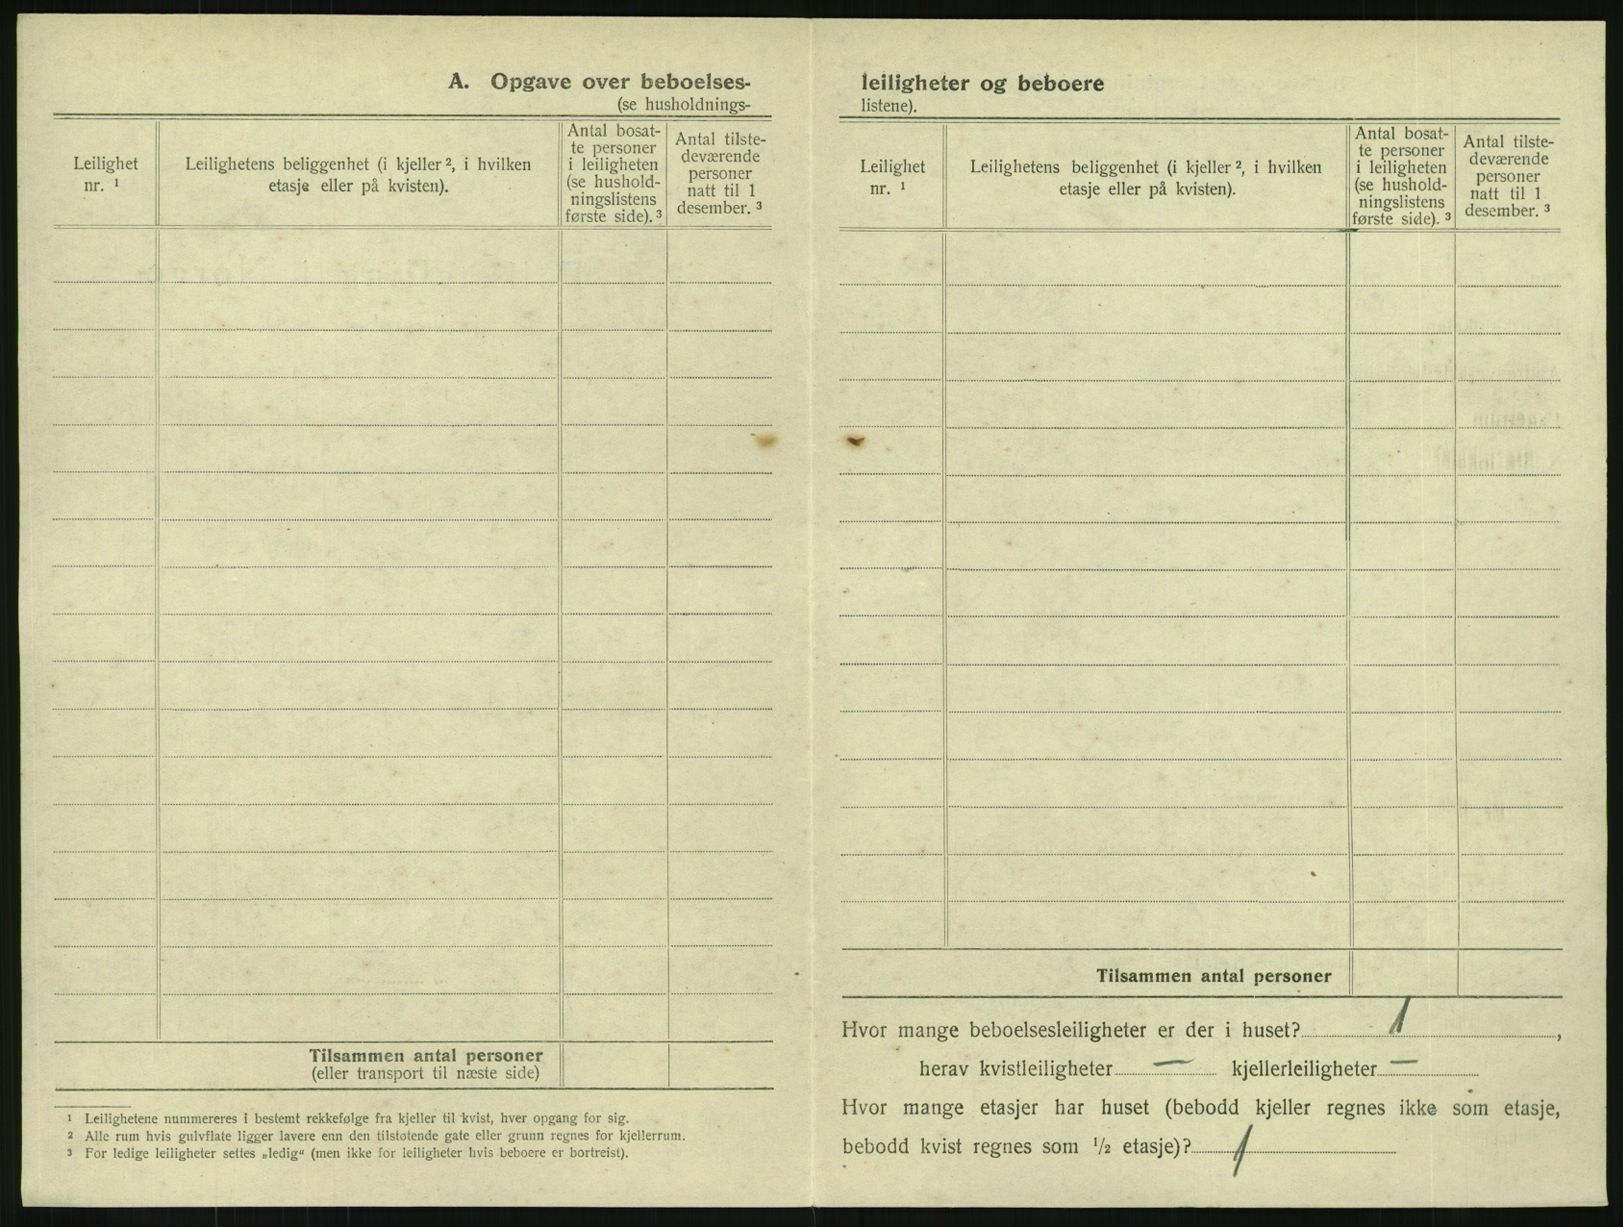 A. Opgave over beboelses-
(se husholdnings-
Leilighet nr. ¹
Leilighetens beliggenhet (i kjeller ², i hvilken etasje eller på kvisten).
Antal bosat-
te personer
i leiligheten
(se hushold-
ningslistens
første side). ³
Antal tilste-
deværende
personer
natt til 1
desember. ³
Tilsammen antal personer
(eller transport til næste side)
¹ Leilighetene nummereres i bestemt rekkefølge fra kjeller til kvist, hver opgang for sig.
² Alle rum hvis gulvflate ligger lavere enn den tilstøtende gate eller grunn regnes for kjellerrum.
³ For ledige leiligheter settes „ledig“ (men ikke for leiligheter hvis beboere er bortreist).
leiligheter og beboere
listene).
Leilighet nr. ¹
Leilighetens beliggenhet (i kjeller ², i hvilken etasje eller på kvisten).
Antal bosat-
te personer
i leiligheten
(se hushold-
ningslistens
første side). ³
Antal tilste-
deværende
personer
natt til 1
desember. ³
Tilsammen antal personer
Hvor mange beboelsesleiligheter er der i huset? 1,
herav kvistleiligheter — kjellerleiligheter —
Hvor mange etasjer har huset (bebodd kjeller regnes ikke som etasje,
bebodd kvist regnes som ½ etasje)? 1